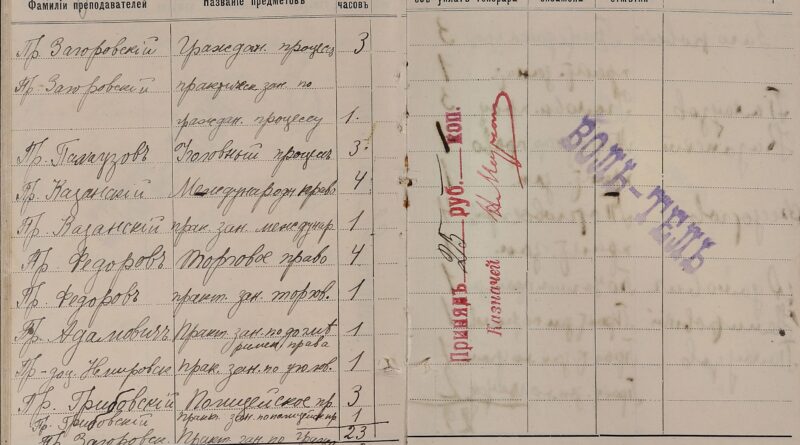 Фамиліи преподавателей Названіе предметовъ часовъ
Пр. Загоровскій Граждан. процессъ 3
Пр. Загоровскій практическ зан. по
граждан. процессу 1.
Пр. Палаузовъ Уголовный процессъ 3.
Пр. Казанскій Международн. право 4
Пр. Казанскій прак. зан. междунар 1
Пр. Федоровъ Торговое право 4
Пр. Федоровъ практ. зан. торгов. 1
Пр. Адамовичъ Практ. зан. по догмѣ 1
римск. права
Пр-доц. Немировск прак. зан. по уголов. 1
Пр. Грибовскій Полицейское пр. 3
Пр. Грибовскій Практ. зан. по полицейск. пр 1
23
Пр. Загоровск. Практ. зан. по
Принялъ 25 руб. — коп.
Казначей
ВОЛЬ-ТЕЛЬ